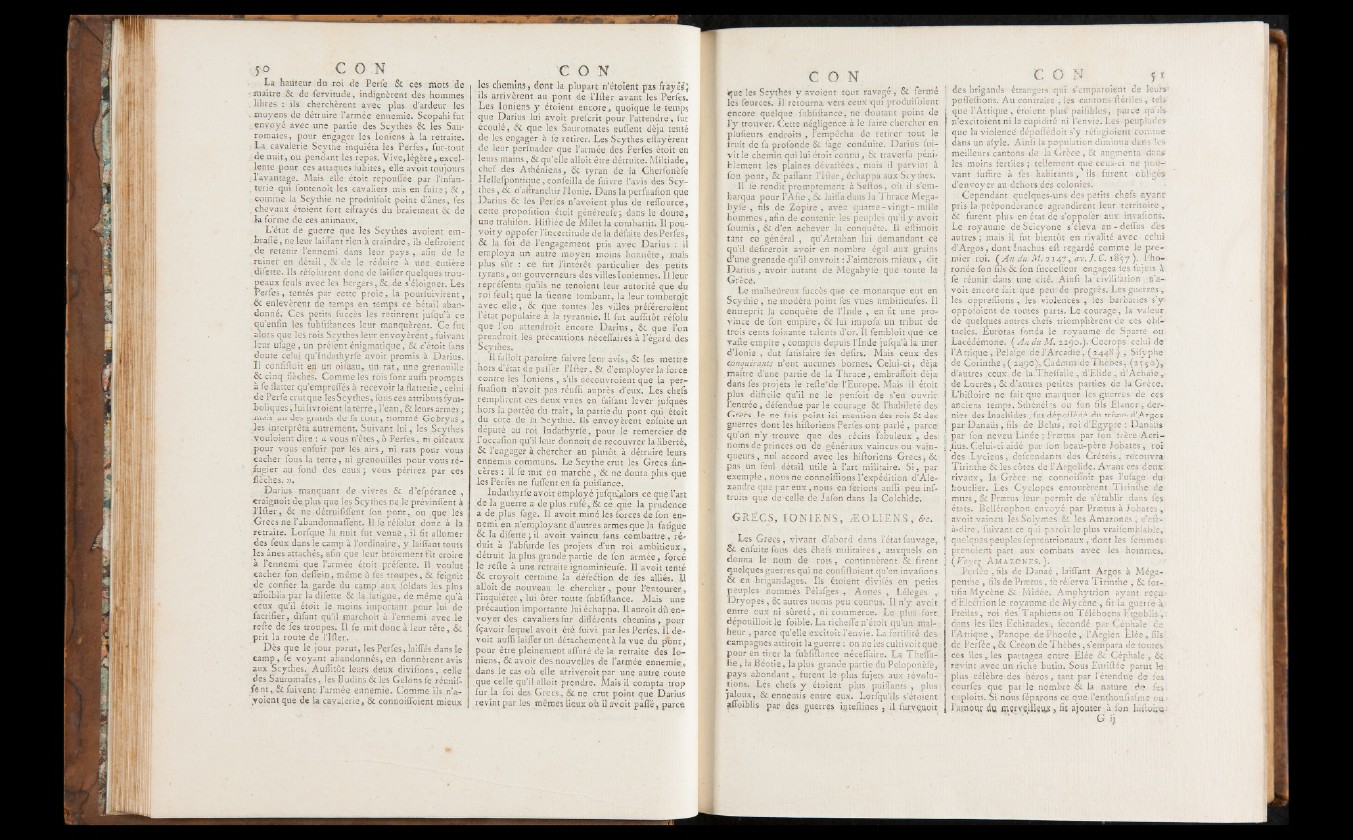 50 CON CON
La hauteur du roi de Perſe & ces mots de
maître & de ſervitude, indignèrent des hommes
libres : ils cherchèrent avec plus d'ardeur les
moyens de détruire l'armée ennemie. Scopaſi fut
envoyé avec une partie des Scythes & les Sau-
romates, pour engager les Ioniens à la retraite.
La cavalerie Scythe inquiéta les Perſes, ſur-tout
de nuit, ou pendant les repas. Vive, légère, excel-
lente pour ces attaques ſubites, elle avoit toujours
l'avantage. Mais elle étoit repouſſée par l'infan-
terie qui ſoutenoit les cavaliers mis en fuite; &,
comme la Scythie ne produiſoit point d'ânes, ſes
chevaux étoient fort effrayés du braiement & de
la forme de ces animaux.
L'état de guerre que les Scythes avoient em-
braſſé, ne leur laiſſant rien à craindre, ils deſiroient
de retenir l'ennemi dans leur pays, afin de le
ruiner en détail, & de le réduire à une entière
diſette. Ils réſolurent donc de laiſſer quelques trou-
peaux ſeuls avec les bergers, & de s'éloigner. Les
Perſes, tentés par cette proie, la pourſuivirent,
& enlevèrent de temps en temps ce bétail aban-
donné. Ces petits ſuccès les retinrent juſqu'à ce
qu'enfin les ſubſiſtances leur manquèrent. Ce fut
alors que les rois Scythes leur envoyèrent, ſuivant
leur uſage, un préſent énigmatique, & c'étoit ſans
doute celui qu'Indathyrſe avoit promis à Darius.
Il conſiſtoit en un oiſeau, un rat, une grenouille
& cinq flèches. Comme les rois ſont auſſi prompts
à ſe flatter qu'empreſſés à recevoir la flatterie, celui
de Perſe crut que les Scythes, ſous ces attributs ſym-
boliques, lui livroient la terre, l'eau, & leurs armes;
mais un des grands de ſa cour, nommé Gobryas,
les interpréta autrement. Suivant lui, les Scythes
vouloient dire : « vous n'êtes, ô Perſes, ni oiſeaux
pour vous enfuir par les airs, ni rats pour vous
cacher ſous la terre, ni grenouilles pour vous ré-
fugier au fond des eaux; vous périrez par ces
flèches. ».
Darius manquant de vivres & d'eſpérance,
craignoit de plus que les Scythes ne le prévinſſent à
l'Iſter, & ne détruiſiſſent ſon pont, ou que les
Grecs ne l'abandonnaſſent. Il ſe réſolut donc à la
retraite. Lorſque la nuit fut venue, il fit allumer
des feux dans le camp à l'ordinaire, y laiſſant touts
les ânes attachés, afin que leur braiement fît croire
à l'ennemi que l'armée étoit préſente. Il voulut
cacher ſon deſſein, même à ſes troupes, & feignit
de confier la garde du camp aux ſoldats les plus
affoiblis par la diſette & la fatigue, de même qu'à
ceux qu'il étoit le moins important pour lui de
ſacrifier, diſant qu'il marchoit à l'ennemi avec le
reſte de ſes troupes. Il ſe mit donc à leur tête, &
prit la route de l'Iſter.
Dès que le jour parut, les Perſes, laiſſés dans le
camp, ſe voyant abandonnés, en donnèrent avis
aux Scythes. Auſſitôt leurs deux diviſions, celle
des Sauromates, les Budins & les Gelons ſe réuniſ-
ſent, & ſuivent l'armée ennemie. Comme ils n'a-
voient que de la cavalerie, & connoiſſoient mieux
les chemins, dont la plupart n'étoient pas frayés;
ils arrivèrent au pont de l'Iſter avant les Perſes.
Les Ioniens y étoient encore, quoique le temps
que Darius lui avoit preſcrit pour l'attendre, fut
écoulé, & que les Sauromates euſſent déja tenté
de les engager à ſe retirer. Les Scythes eſſayèrent
de leur perſuader que l'armée des Perſes étoit en
leurs mains, & qu'elle alloit être détruite. Miltiade,
chef des Athéniens, & tyran de la Cherſonèſe
Helleſpontique, conſeilla de ſuivre l'avis des Scy-
thes, & d'affranchir l'Ionie. Dans la perſuaſion que
Darius & les Perſes n'avoient plus de reſſource,
cette propoſition étoit généreuſe; dans le doute,
une trahiſon. Hiſtiée de Milet la combattit. Il pou-
voit y oppoſer l'incertitude de la défaite des Perſes,
& la foi de l'engagement pris avec Darius : il
employa un autre moyen moins honnête, mais
plus ſûr : ce fut l'intérêt particulier des petits
tyrans, ou gouverneurs des villes Ioniennes. Il leur
repréſenta qu'ils ne tenoient leur autorité que du
roi ſeul; que la ſienne tombant, la leur tomberoit
avec elle, & que toutes les villes préféreroient
l'état populaire à la tyrannie. Il fut auſſitôt réſolu
que l'on attendroit encore Darius, & que l'on
prendroit les précautions néceſſaires à l'égard des
Scythes.
Il falloit paroître ſuivre leur avis, & les mettre
hors d'état de paſſer l'Iſter, & d'employer la force
contre les Ioniens, s'ils découvroient que la per-
ſuaſion n'avoit pas réuſſi auprès d'eux. Les chefs
remplirent ces deux vues en faiſant lever juſques
hors la portée du trait, la partie du pont qui étoit
du côté de la Scythie. Ils envoyèrent enſuite un
député au roi Indathyrſe, pour le remercier de
l'occaſion qu'il leur donnoit de recouvrer la liberté,
& l'engager à chercher au plutôt à détruire leurs
ennemis communs. Le Scythe crut les Grecs ſin-
cères : il ſe mit en marche, & ne douta plus que
les Perſes ne fuſſent en ſa puiſſance.
Indathyrſe avoit employé juſqu'alors ce que l'art
de la guerre a de plus ruſé, & ce que la prudence
a de plus ſage. Il avoit miné les forces de ſon en-
nemi en n'employant d'autres armes que la fatigue
& la diſette; il avoit vaincu ſans combattre, ré-
duit à l'abſurde les projets d'un roi ambitieux,
détruit la plus grande partie de ſon armée, forcé
le reſte à une retraite ignominieuſe. Il avoit tenté
& croyoit certaine la défection de ſes alliés. Il
alloit de nouveau le chercher, pour l'entourer,
l'inquiéter, lui ôter toute ſubſiſtance. Mais une
précaution importante lui échappa. Il auroit dû en-
voyer des cavaliers ſur différents chemins, pour
ſçavoir lequel avoit été ſuivi par les Perſes. Il de-
voit auſſi laiſſer un détachement à la vue du pont,
pour être pleinement aſſuré de la retraite des Io-
niens, & avoir des nouvelles de l'armée ennemie,
dans le cas où elle arriveroit par une autre route
que celle qu'il alloit prendre. Mais il compta trop
ſur la foi des Grecs, & ne crut point que Darius
revint par les mêmes lieux où il avoit paſſé, parce
CON CON 51
que les Scythes y avoient tout ravagé, & fermé
les ſources. Il retourna vers ceux qui produiſoient
encore quelque ſubſiſtance, ne doutant point de
l'y trouver. Cette négligence à le faire chercher en
pluſieurs endroits, l'empêcha de retirer tout le
fruit de ſa profonde & ſage conduite. Darius ſui-
vit le chemin qui lui étoit connu, & traverſa péni-
blement les plaines dévaſtées, mais il parvint à
ſon pont, & paſſant l'Iſter, échappa aux Scythes.
Il ſe rendit promptement à Seſtos, où il s'em-
barqua pour l'Aſie, & laiſſa dans la Thrace Mega-
byſe, fils de Zopire, avec quatre-vingt-mille
hommes, afin de contenir les peuples qu'il y avoit
ſoumis, & d'en achever la conquête. Il eſtimoit
tant ce général, qu'Artaban lui demandant ce
qu'il deſireroit avoir en nombre égal aux grains
d'une grenade qu'il ouvroit : J'aimerois mieux, dit
Darius, avoir autant de Megabyſe que toute la
Grèce.
Le malheureux ſuccès que ce monarque eut en
Scythie, ne modéra point ſes vues ambitieuſes. Il
entreprit la conquête de l'Inde, en fit une pro-
vince de ſon empire, & lui impoſa un tribut de
trois cents ſoixante talents d'or. Il ſembloit que ce
vaſte empire, compris depuis l'Inde juſqu'à la mer
d'Ionie, dut ſatisfaire ſes deſirs. Mais ceux des
conquérants n'ont aucunes bornes. Celui-ci, déja
maître d'une partie de la Thrace, embraſſoit déja
dans ſes projets le reſte de l'Europe. Mais il étoit
plus difficile qu'il ne le penſoit de s'en ouvrir
l'entrée, défendue par le courage & l'habileté des
Grecs. Je ne fais point ici mention des rois & des
guerres dont les hiſtoriens Perſes ont parlé, parce
qu'on n'y trouve que des récits fabuleux, des
noms de princes ou de généraux vaincus ou vain-
queurs, nul accord avec les hiſtoriens Grecs, &
pas un ſeul détail utile à l'art militaire. Si, par
exemple, nous ne connoiſſions l'expédition d'Ale-
xandre que par eux, nous en ſerions auſſi peu inſ-
truits que de celle de Jaſon dans la Colchide.
GRECS, IONIENS, ÆOLIENS, &c.
Les Grecs, vivant d'abord dans l'état ſauvage,
& enſuite ſous des chefs militaires, auxquels on
donna le nom de rois, continuèrent & firent
quelques guerres qui ne conſiſtoient qu'en invaſions
& en brigandages. Ils étoient diviſés en petits
peuples nommés Pélaſges, Aones, Lélèges,
Dryopes, & autres noms peu connus. Il n'y avoit
entre eux ni sûreté, ni commerce. Le plus fort
dépouilloit le foible. La richeſſe n'étoit qu'un mal-
heur, parce qu'elle excitoit l'envie. La fertilité des
campagnes attiroit la guerre : on ne les cultivoit que
pour en tirer la ſubſiſtance néceſſaire. La Theſſa-
lie, la Béotie, la plus grande partie du Péloponèſe,
pays abondant, furent le plus ſujets aux révolu-
tions. Les chefs y étoient plus puiſſants, plus
jaloux, & ennemis entre eux. Lorſqu'ils s'étoient
affoiblis par des guerres inteſtines, il ſurvenoit
des brigands étrangers qui s'emparoient de leurs
poſſeſſions. Au contraire, les cantons ſtériles, tels
que l'Attique, étoient plus paiſibles, parce qu'ils
n'excitoient ni la cupidité ni l'envie. Les peuplades
que la violence dépoſſédoit s'y réfugioient comme
dans un aſyle. Ainſi la population diminua dans les
meilleurs cantons de la Grèce, & augmenta dans
les moins fertiles; tellement que ceux-ci ne pou-
vant ſuffire à ſes habitants, ils furent obligés
d'envoyer au dehors des colonies.
Cependant quelques-uns des petits chefs ayant
pris la prépondérance agrandirent leur territoire,
& furent plus en état de s'oppoſer aux invaſions.
Le royaume de Scicyone s'éleva au-deſſus des
autres; mais il fut bientôt en rivalité avec celui
d'Argos, dont Inachus eſt regardé comme le pre-
mier roi. (An du M. 2147, av. J. C. 1857). Pho-
ronée ſon fils & ſon ſucceſſeur engagea ſes ſujets à
ſe réunir dans une cité. Ainſi la civiliſation n'a-
voit encore fait que peu de progrès. Les guerres,
les oppreſſions, les violences, les barbaries s'y
oppoſoient de toutes parts. Le courage, la valeur
de quelques autres chefs triomphèrent de ces obſ-
tacles. Eurotas fonda le royaume de Sparte ou
Lacédémone. (An du M. 2290.). Cecrops celui de
l'Attique, Pelaſge de l'Arcadie, (2448), Siſyphe
de Corinthe, (2490), Cadmus de Thèbes, (2550),
d'autres ceux de la Theſſalie, d'Elide, d'Achaïe,
de Locres, & d'autres petites parties de la Grèce.
L'hiſtoire ne fait que marquer les guerres de ces
anciens temps. Sthénélus ou ſon fils Elanor, der-
nier des Inachides, fut dépoſſédé du trône d'Argos
par Danaüs, fils de Bélus, roi d'Egypte : Danaüs
par ſon neveu Linée; Prætus par ſon frère Acri-
ſius. Celui-ci aidé par ſon beau-père Jobates, roi
des Lyciens, deſcendants des Crétois, recouvra
Tirinthe & les côtes de l'Argolide. Avant ces deux
rivaux, la Grèce ne connoiſſoit pas l'uſage du
bouclier. Les Cyclopes entourèrent Tirinthe de
murs, & Prætus leur permit de s'établir dans ſes
états. Bellérophon envoyé par Prætus à Jobates,
avoit vaincu les Solymes & les Amazones, c'eſt-
à-dire, ſuivant ce qui paroît le plus vraiſemblable,
quelques peuples ſeptentrionaux, dont les femmes
prenoient part aux combats avec les hommes.
(Voyez AMAZONES.).
Perſée, fils de Danaé, laiſſant Argos à Méga-
penthe, fils de Prætus, ſe réſerva Tirinthe, & for-
tifia Mycène & Midée. Amphytrion ayant reçu
d'Electrion le royaume de Mycène, fit la guerre à
Ptérélas, roi des Taphiens ou Téléboens
dans les îles Echinades, ſecondé par Céphale de
l'Attique, Panope de Phocée, l'Argien Elée, fils
de Perſée, & Créon de Thèbes, s'empara de toutes
ces îles, les partagea entre Elée & Céphale, &
revint avec un riche butin. Sous Euriſtée parut le
plus célèbre des héros, tant par l'étendue de ſes
courſes que par le nombre & la nature de ſes
exploits. Si nous ſéparons ce que l'enthouſiaſme ou
l'amour du merveilleux, fit ajouter à ſon hiſtoire
G ij